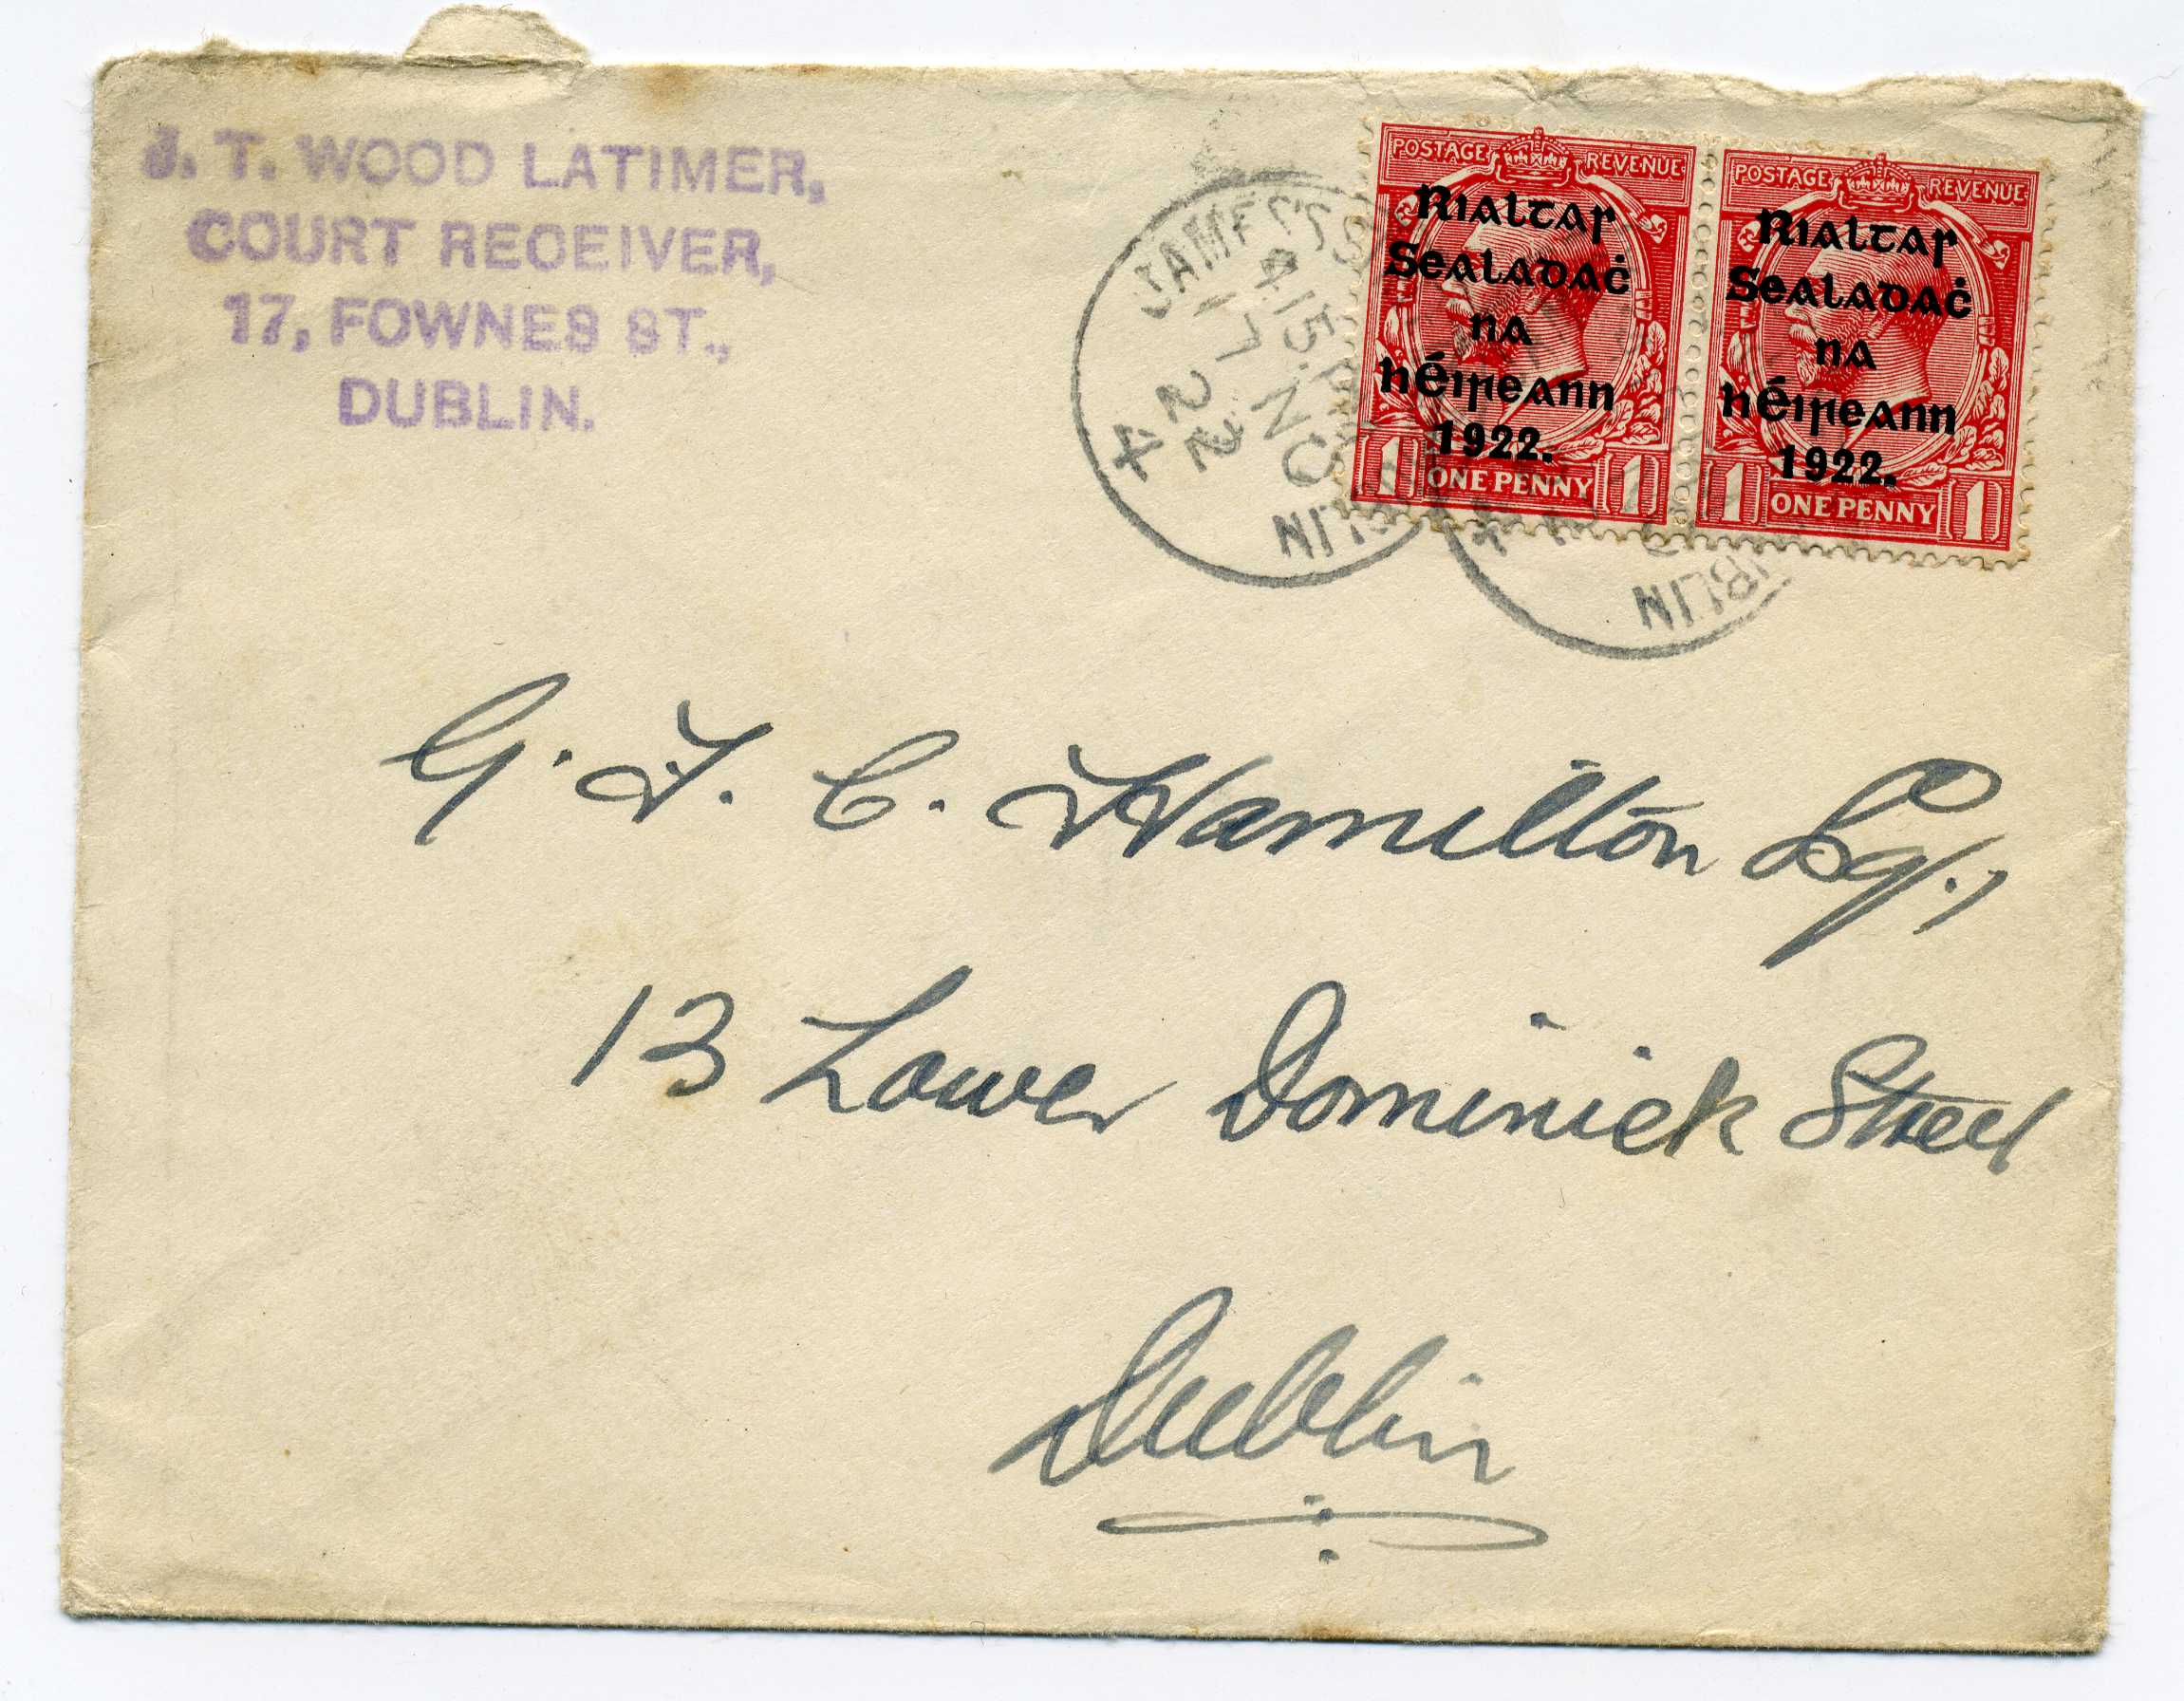 J. T. WOOD LATIMER,
COURT RECEIVER,
17, FOWNES ST.,
DUBLIN.
JAMES'S ST
4.15 P
17 NO
22
4
BLIN
POSTAGE REVENUE
Rialtas
Sealadaċ
na
hÉireann
1922.
1 ONE PENNY 1
POSTAGE REVENUE
Rialtas
Sealadaċ
na
hÉireann
1922.
1 ONE PENNY 1
UBLIN
G. F. C. Hamilton Esq.,
13 Lower Dominick Street
Dublin